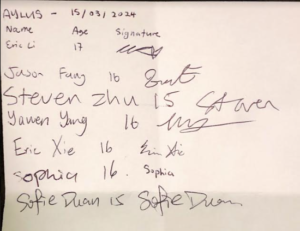 AYLUS - 15/03/2024
Name Age Signature
Eric Li 17
Jason Fang 16
Steven Zhu 15 Steven
Yawen Yang 16
Eric Xie 16 Eric Xie
Sophia 16. Sophia
Sofie Duan 15 Sofie Duan